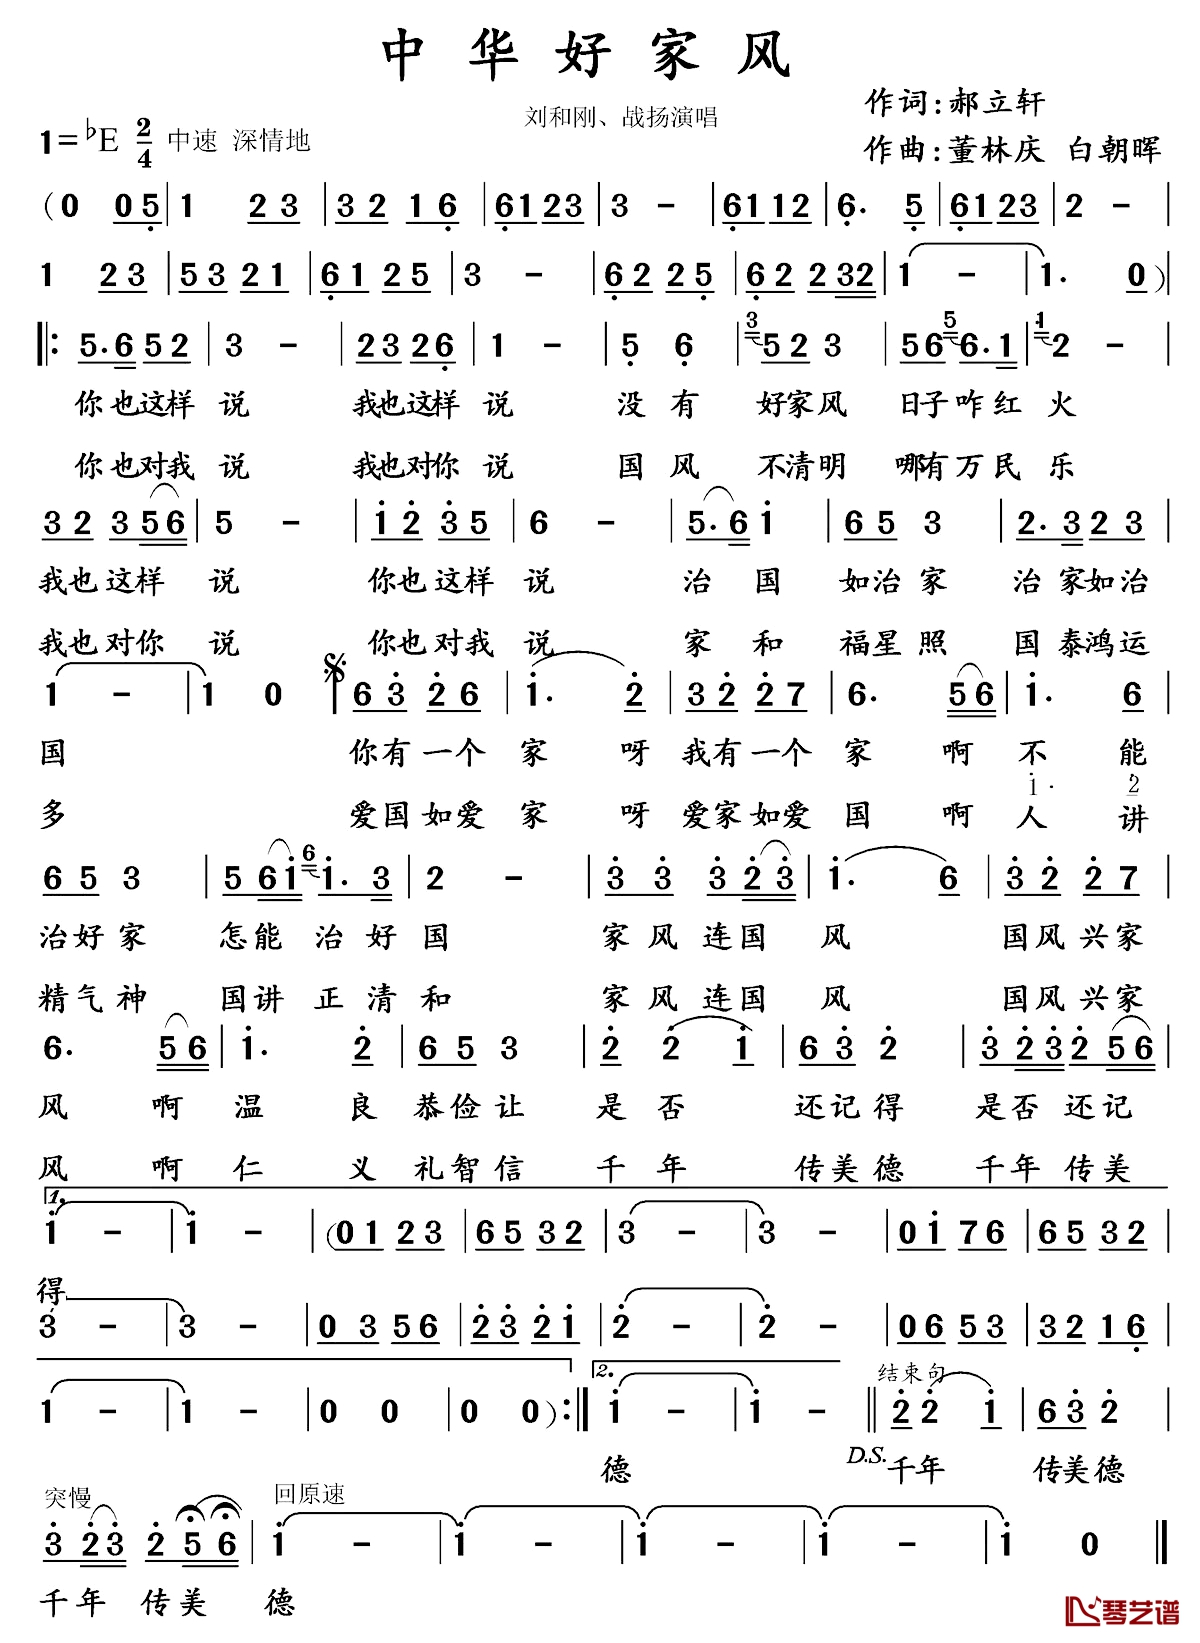 中华好家风
作词:郝立轩
刘和刚、战扬演唱
1=♭E 2/4 中速 深情地
作曲:董林庆 白朝晖
(0 05|1 23|32 16|6123|3 -|6112|6. 5|6123|2 -|
1 23|53 21|61 25|3 -|62 25|62 232|1 -|1. 0)|
‖:5.6 52|3 -|23 26|1 -|5 6|3 52 3|56 5 6.1|1 2 -|
你也这样 说 我也这样 说 没有 好家风 日子咋红 火
你也对我 说 我也对你 说 国风 不清明 哪有万民 乐
32 356|5 -|12 35|6 -|5.6 1|65 3|2.3 23|
我也这样 说 你也这样 说 治国 如治家 治家如治
我也对你 说 你也对我 说 家和 福星照 国泰鸿运
1 -|1 0|63 26|1. 2|32 27|6. 56|1. 6|
国 你有一个 家 呀 我有一个 家 啊 不 能
1· 2
多 爱国如爱 家 呀 爱家如爱 国 啊 人 讲
65 3|561 6 1.3|2 -|33 323|1. 6|32 27|
治好家 怎能治好 国 家风连国 风 国风兴家
精气神 国讲正清 和 家风连国 风 国风兴家
6. 56|1. 2|65 3|2 2 1|63 2|323 256|
风 啊 温 良 恭俭让 是否 还记得 是否还记
风 啊 仁 义 礼智信 千年 传美德 千年传美
1.
1 -|1 -|(01 23|65 32|3 -|3 -|01 76|65 32|
得
3 -|3 -|03 56|23 21|2 -|2 -|06 53|32 16|
2. 结束句
1 -|1 -|0 0|0 0):‖1 -|1 -‖2 2 1|63 2|
德 D.S. 千年 传美德
突慢 回原速
323 256|1 -|1 -|1 -|1 -|1 0‖
千年 传美 德
琴艺谱